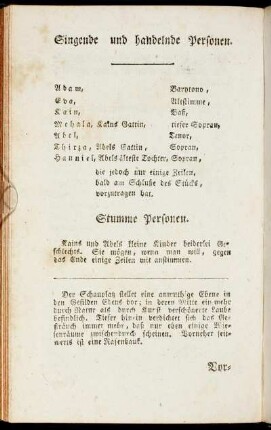 Singende und handelnde Personen.
Adam, Barytono,
Eva, Altstimme,
Kain, Baß,
Mehala, Kains Gattin, tiefer Sopran,
Abel, Tenor,
Thirza, Abels Gattin, Sopran,
Hanniel, Abels älteste Tochter, Sopran,
die jedoch nur einige Zeilen,
bald am Schluße des Stücks,
vorzutragen hat.
Stumme Personen.
Kains und Abels kleine Kinder beiderlei Ge-
schlechts. Sie mögen, wenn man will, gegen
das Ende einige Zeilen mit anstimmen.
Der Schauplatz stellet eine anmuthige Ebene in
den Gefilden Edens vor; in deren Mitte ein mehr
durch Natur als durch Kunst verschönerte Laube
befindlich. Tiefer hinein verdichtet sich das Ge-
sträuch immer mehr, daß nur eben einige Wie-
senräume zwischendurch scheinen. Vorneher seit-
werts ist eine Rasenbank.
Vor-